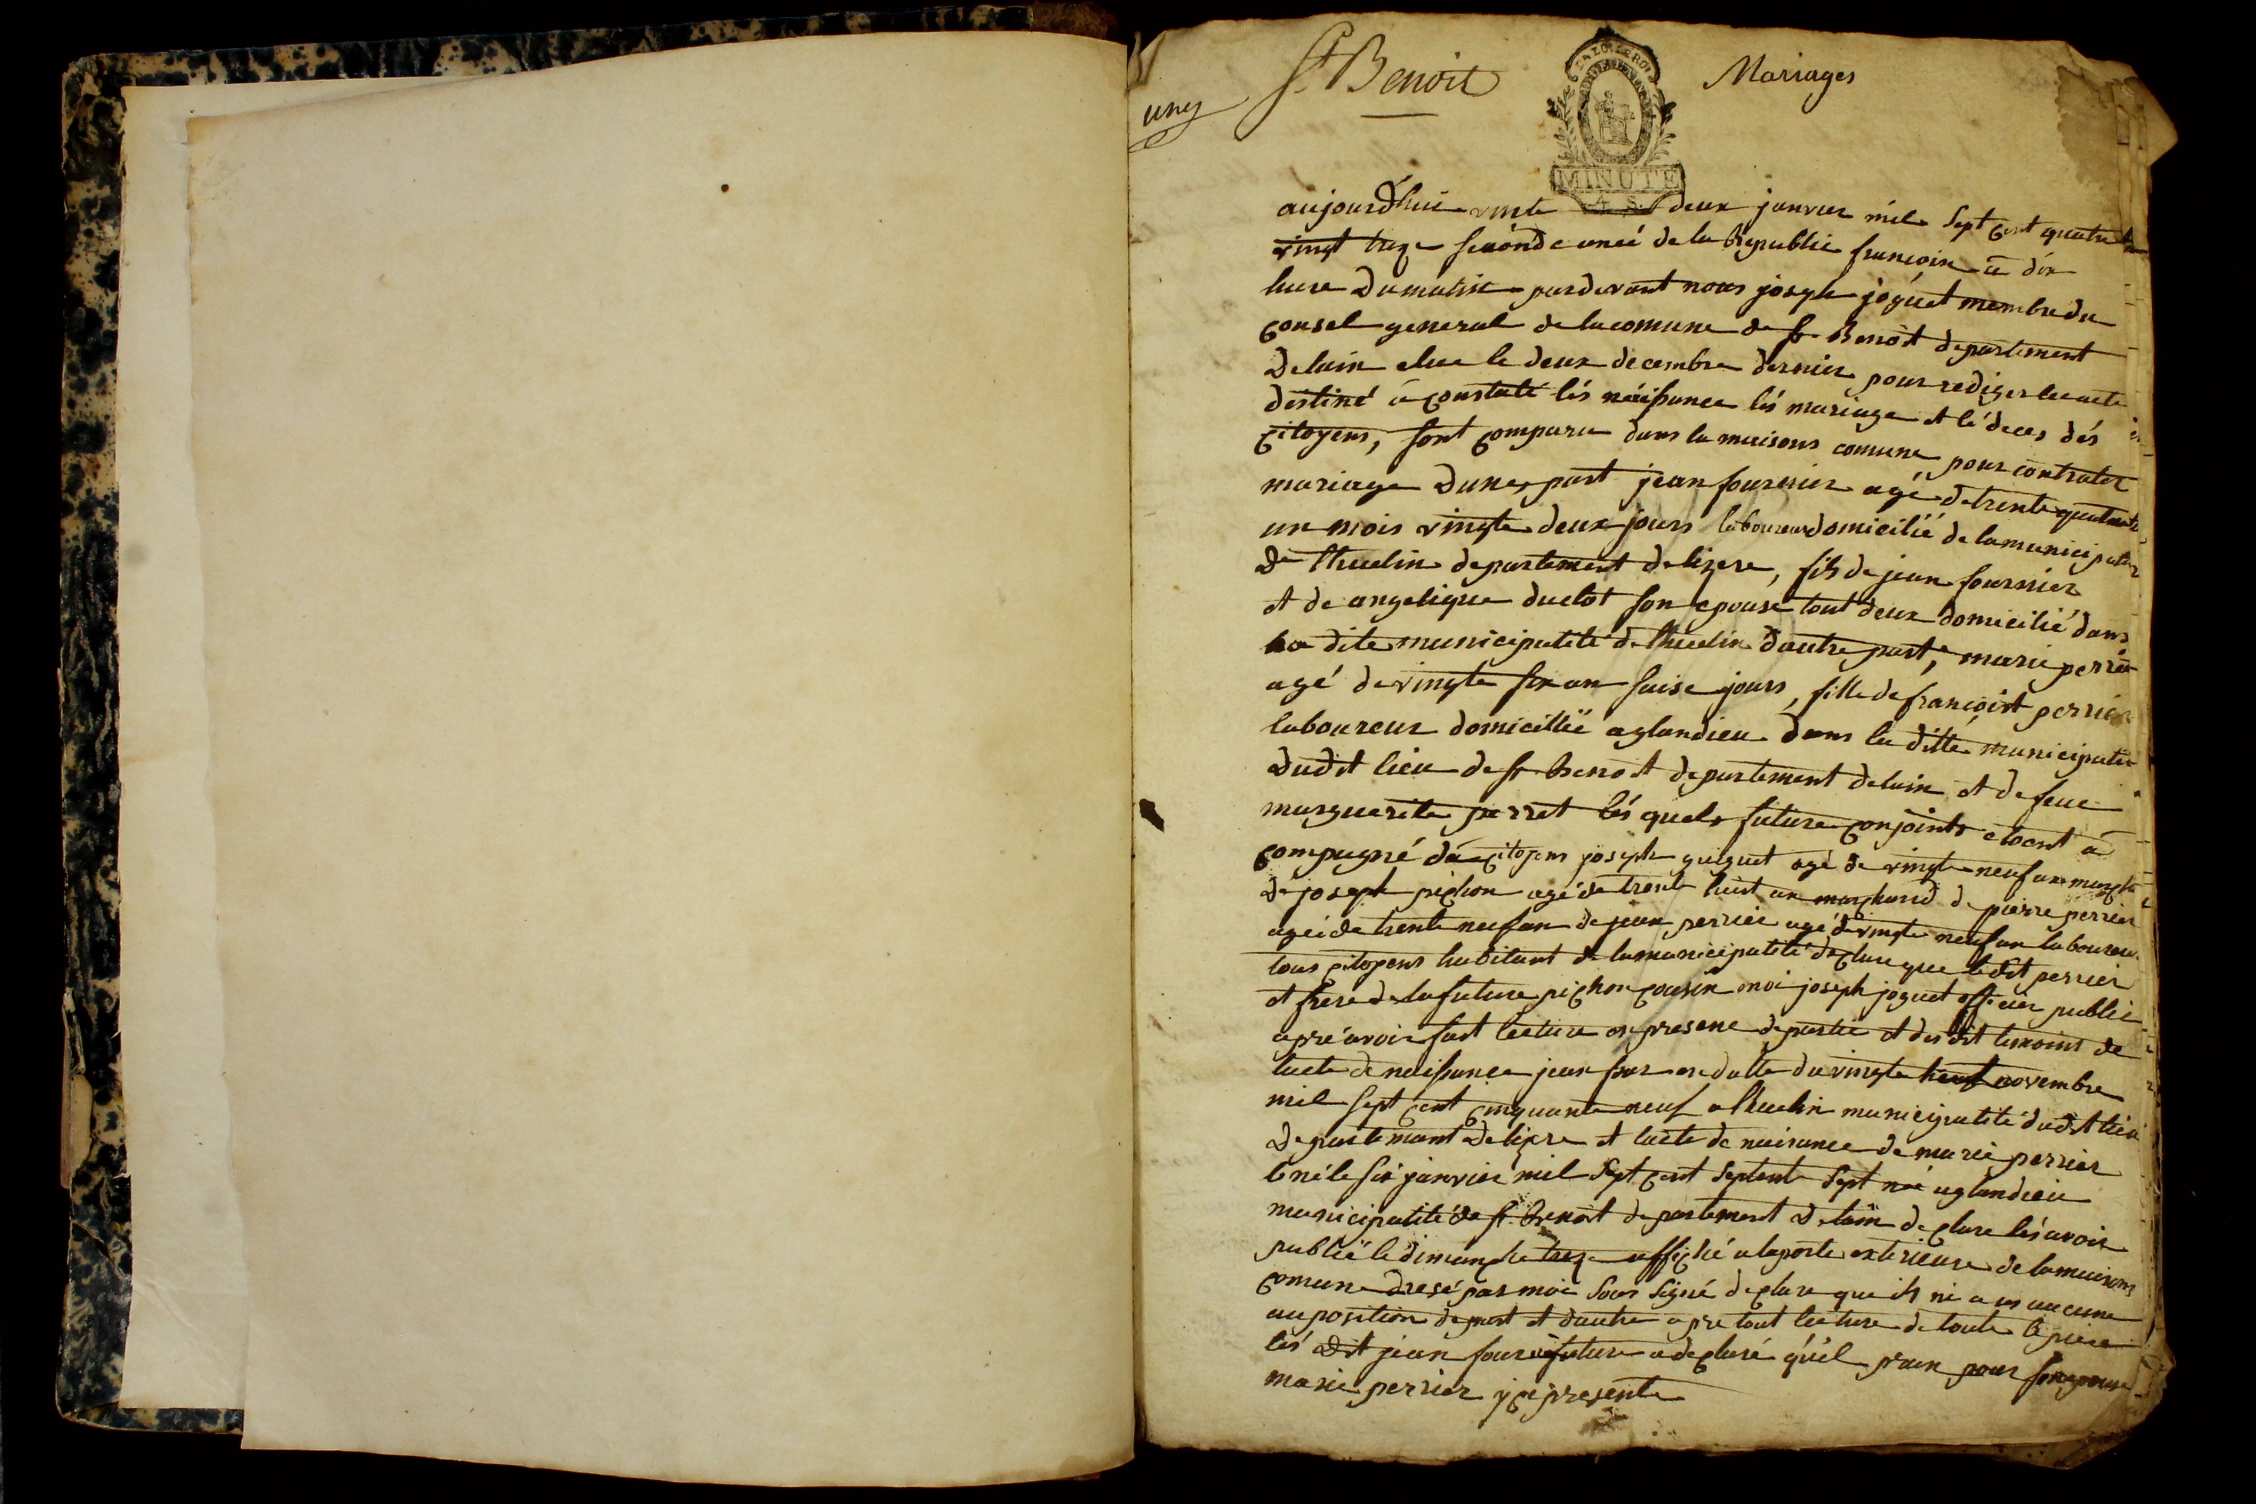 St Benoit
Mariages
uny
MINUTE
4. S.
aujourdhui vinte deux janvier mil sept cent quatre
vingt treze seconde aneé de la Republic francoise a dix
hure du matin pardevant nous joseph joguet membre du
consel general de la comune de st Benoit departement
de lain elue le deux decembre dernier pour rediger les acte
destiné a constaté lés naissance lés mariage et lé deces dés
citoyens, sont comparu dans la maisons comune, pour contrater
mariage dune part jean fournier agé de trente quatre
un mois vingte deux jours laboureur domicilié de la municipalite
de thuelin departement de lizere, fils de jean fournier
et de angelique duclot son epouse tout deux domicilié dans
la dite municipalité de thuelin dautre part, marie perrier
agé de vingte six an saise jours, fille de francoist perrier
laboureur domicillié a glandieu dans la ditte municipalite
dudit lieu de st Benoit departement de lain et de feue
marguerite perret lés quels future conjoints etoent a
compagné da citoyens joseph guiguet agé de vingte neuf an marchd
de joseph pichon agé de trente huit an marchand de pierre perrier
ageé de trente neuf an de jean perrier agé de vingte neuf an laboureur
tous citoyens habitant de la municipalité declare que ledit perrier
et frere de la future pichon cousin moi joseph joguet officier public
apré avoir fait lecture en presene de partie et des dit temoins de
lacte de naissance jean four en datte du vingte neuf novembre
mil sept cent cinquante neuf a thuelin municipalité dudit lieu
departemant de lizere et lacte de naisance de marie perrier
le né le six janvier mil sept cent septente sept né a glandieu
municipalité de st Benoit departement de lain declare lés avoir
publié le dimanche treze affiché a la porte exterieure de la maisons
comune dresé par moi sous signé declare que ils ni a us aucune
auposition de part et dautre apre tout lecture de toute le piece
lés dit jean four future a declaré quél pran pour son epouse
marie perrier ycè presente